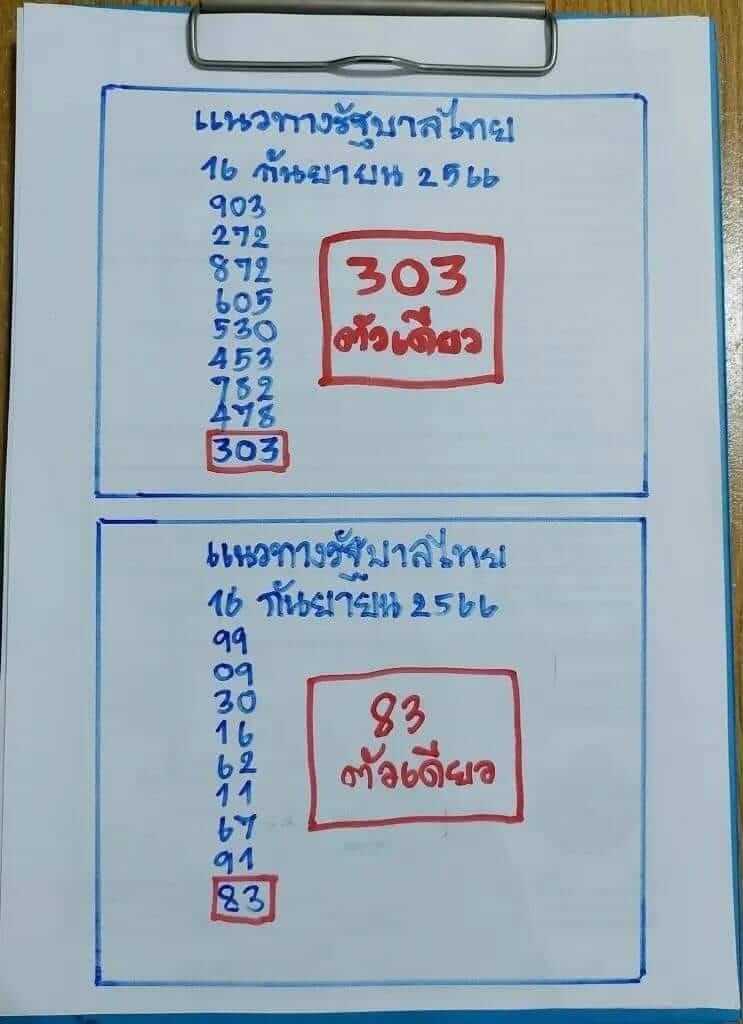 แนวทางรัฐบาลไทย
16 กันยายน 2566
903
272
872
605
530
453
782
478
303
303
ตัวเดียว
แนวทางรัฐบาลไทย
16 กันยายน 2566
99
09
30
16
62
11
67
91
83
83
ตัวเดียว